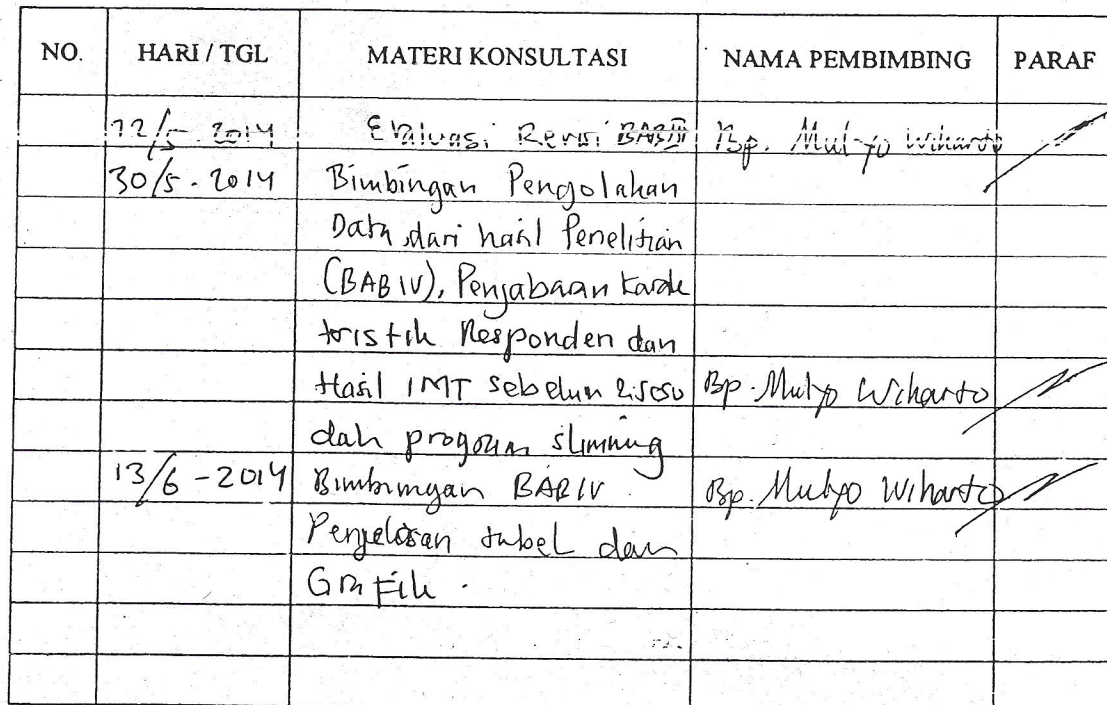 NO. HARI / TGL MATERI KONSULTASI NAMA PEMBIMBING PARAF
/5 - 2014 Evaluasi Revisi BAB III Bp. Mulyo Wiharto
30/5 - 2014 Bimbingan Pengolahan
Data dari hasil Penelitian
(BAB IV), Penjabaran karak
teristik Responden dan
Hasil IMT sebelum & sesu Bp. Mulyo Wiharto
dah program slimming
13/6 - 2014 Bimbingan BAB IV Bp. Mulyo Wiharto
Penjelasan tabel dan
Grafik.